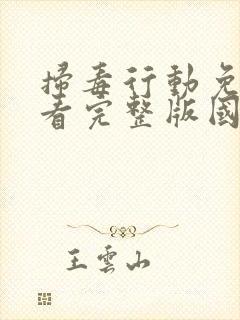 掃毒行動免
看完整版國
王雲山